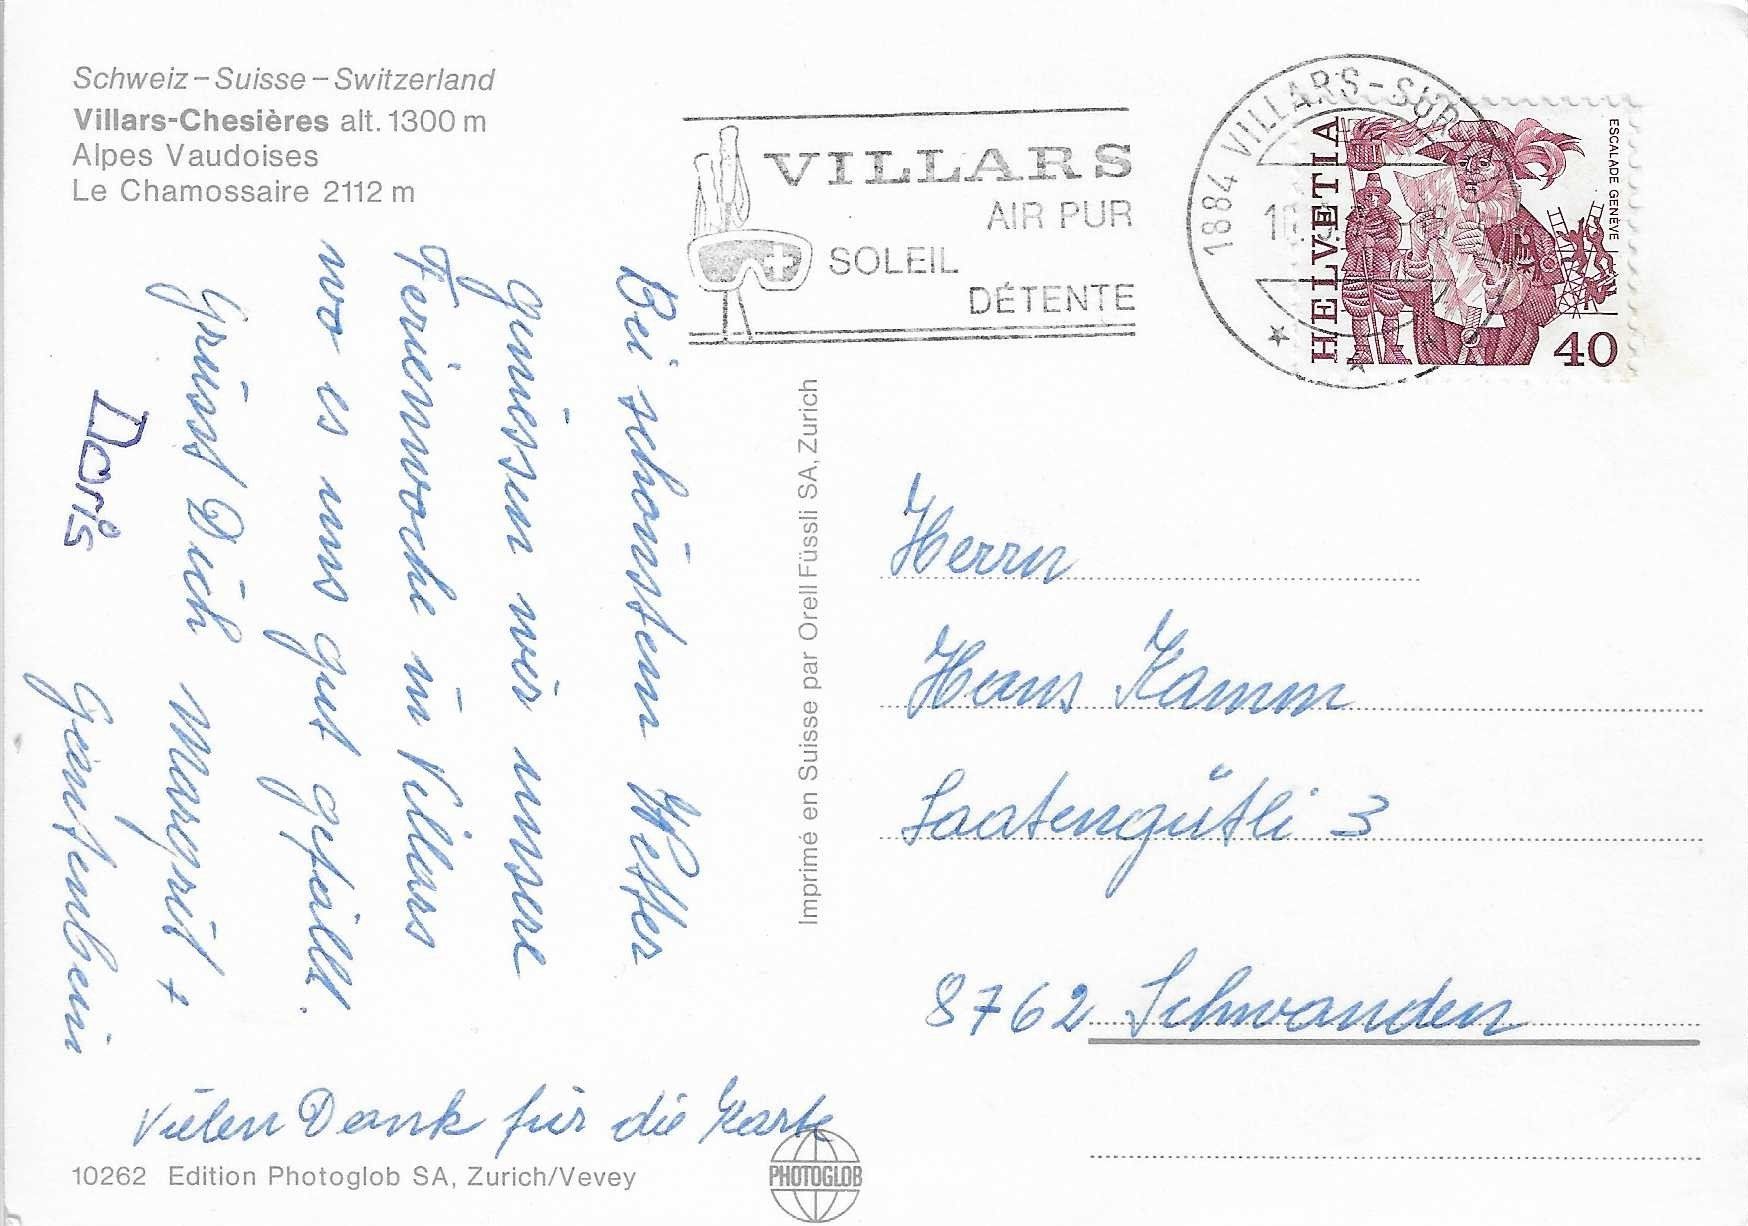 Schweiz – Suisse – Switzerland
Villars-Chesières alt. 1300 m
Alpes Vaudoises
Le Chamossaire 2112 m
VILLARS
AIR PUR
SOLEIL
DÉTENTE
1884 VILLARS-SUR
HELVETIA
ESCALADE GENÈVE
40
Bei schönstem Wetter
geniessen wir unsere
Ferienwoche in Villars
wo es uns gut gefällt.
Grüsst Dich Margrit +
Doris
Vielen Dank für die Karte
Imprimé en Suisse par Orell Füssli SA, Zurich
Herrn
Hans Kamm
Saatengütli 3
8762 Schwanden
10262 Edition Photoglob SA, Zurich/Vevey
PHOTOGLOB